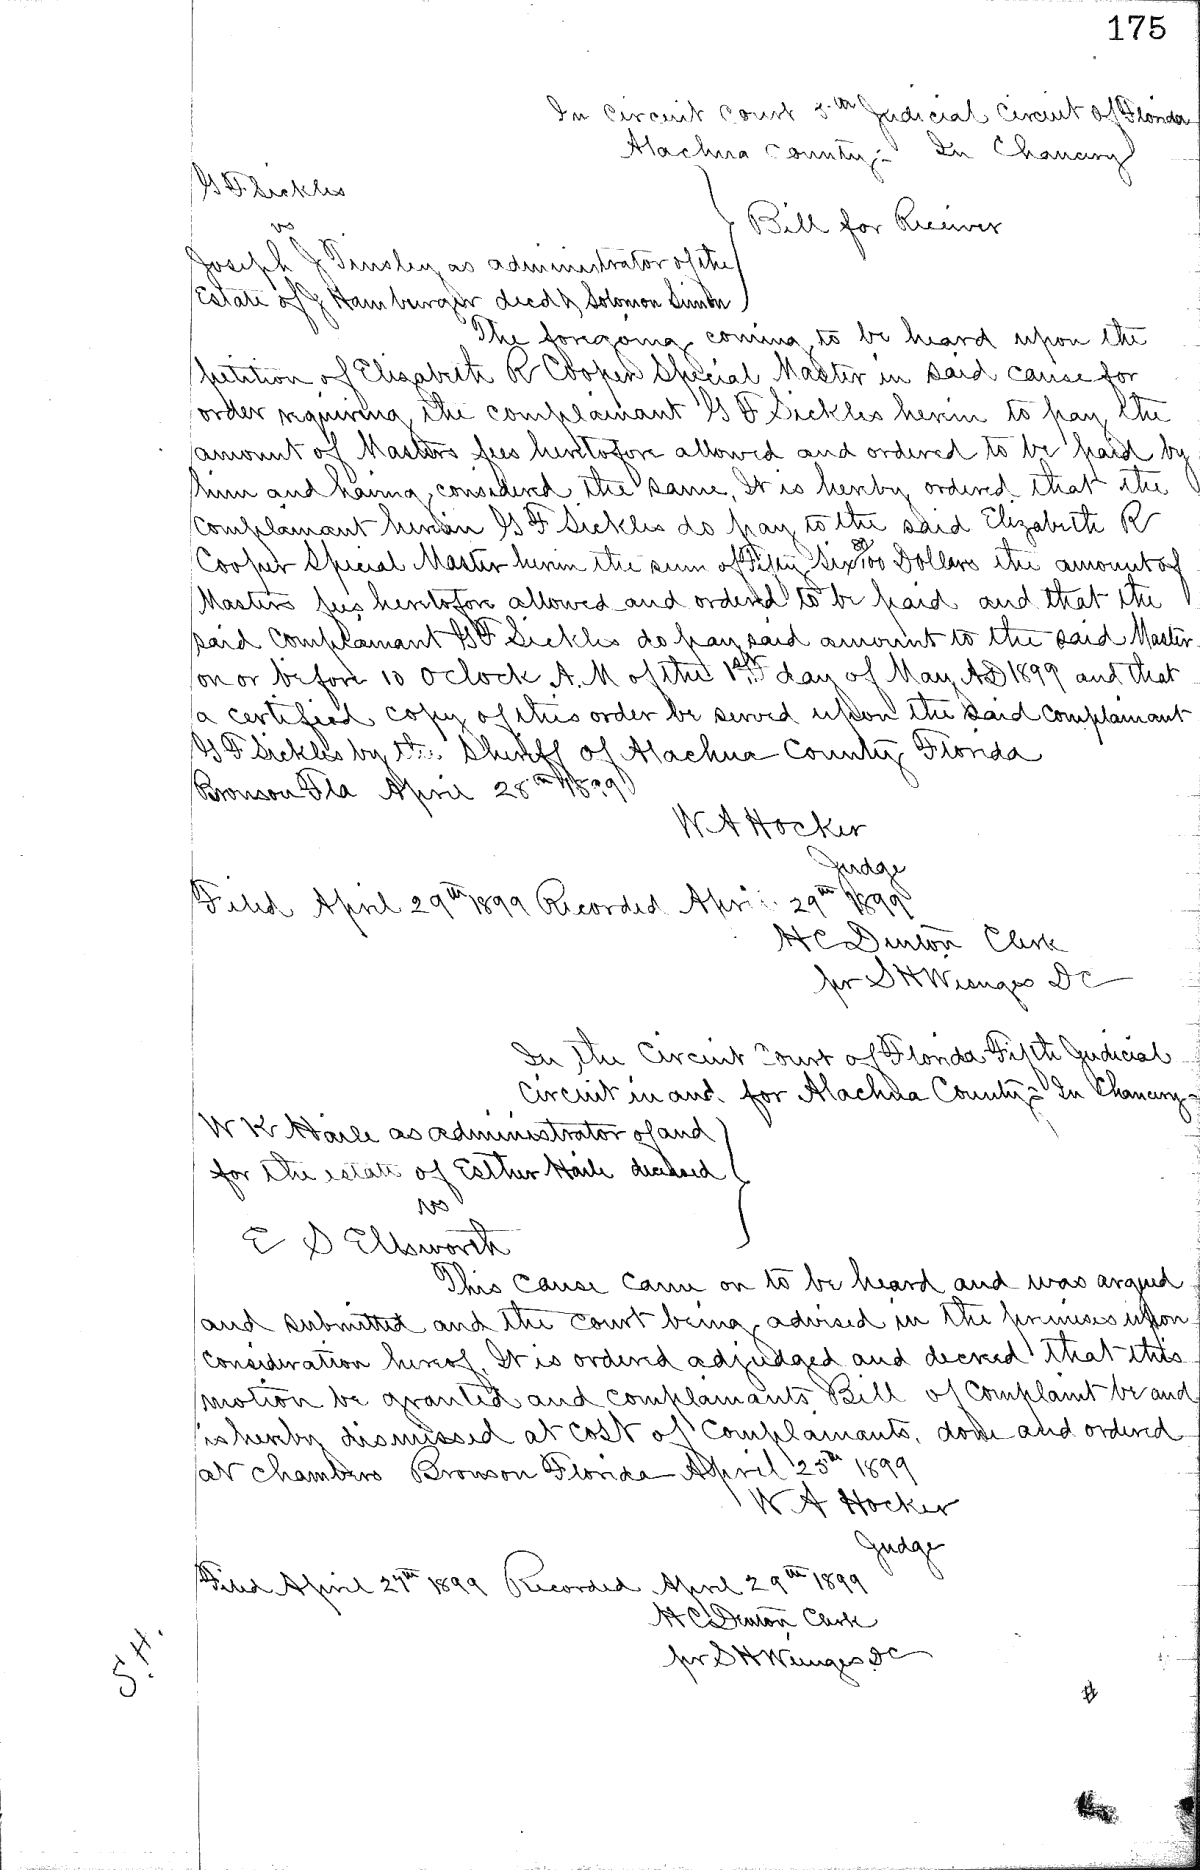 175
In Circuit Court 5th Judicial Circuit of Florida
Alachua County;= In Chancery
G F Sickles
vs
Bill for Receiver
Joseph J Tinsley as administrator of the
Estate of J Hamburger decd & Solomon Simon
The foregoing coming to be heard upon the
petition of Elizabeth R Cooper Special Master in said cause for
order requiring the complainant G F Sickles herein to pay the
amount of Masters fees heretofore allowed and ordered to be paid by
him and having considered the same, It is hereby ordered that the
complainant herein G F Sickles do pay to the said Elizabeth R
Cooper Special Master herein the sum of Fifty Six /100 Dollars the amount of
Masters fees heretofore allowed and ordered to be paid and that the
said Complainant G F Sickles do pay said amount to the said Master
on or before 10 Oclock A.M of the 1st day of May AD 1899 and that
a certified copy of this order be served upon the said complainant
G F Sickles by the Sheriff of Alachua County Florida
Bronson Fla April 28th 1899
W A Hocker
Judge
Filed April 29th 1899 Recorded April 29th 1899
H C Denton Clerk
pr S H Wienges DC
In the Circuit Court of Florida Fifth Judicial
Circuit in and for Alachua County;= In Chancery
W K Haile as administrator of and
for the estate of Esther Haile deceased
vs
E S Ellsworth
This cause came on to be heard and was argued
and submitted and the court being advised in the premises upon
consideration hereof, It is ordered adjudged and decreed that this
motion be granted and complainants Bill of Complaint be and
is hereby dismissed at cost of Complainants, done and ordered
at chambers Bronson Florida April 25th 1899
W A Hocker
Judge
Filed April 27th 1899 Recorded April 29th 1899
H C Denton Clerk
pr S H Wienges DC
S.H.